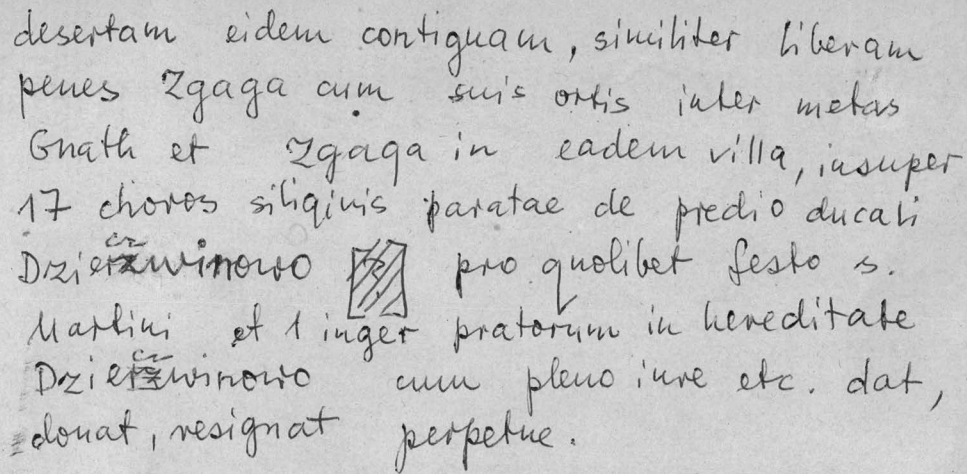 desertam eidem contiguam, similiter liberam
penes Zgaga cum suis ortis inter metas
Gnath et Zgaga in eadem villa, insuper
17 choros siliginis paratae de predio ducali
Dzierczwinowo pro quolibet festo s.
Martini et 1 iuger pratorum in hereditate
Dzierczwinowo cum pleno iure etc. dat,
donat, resignat perpetue.